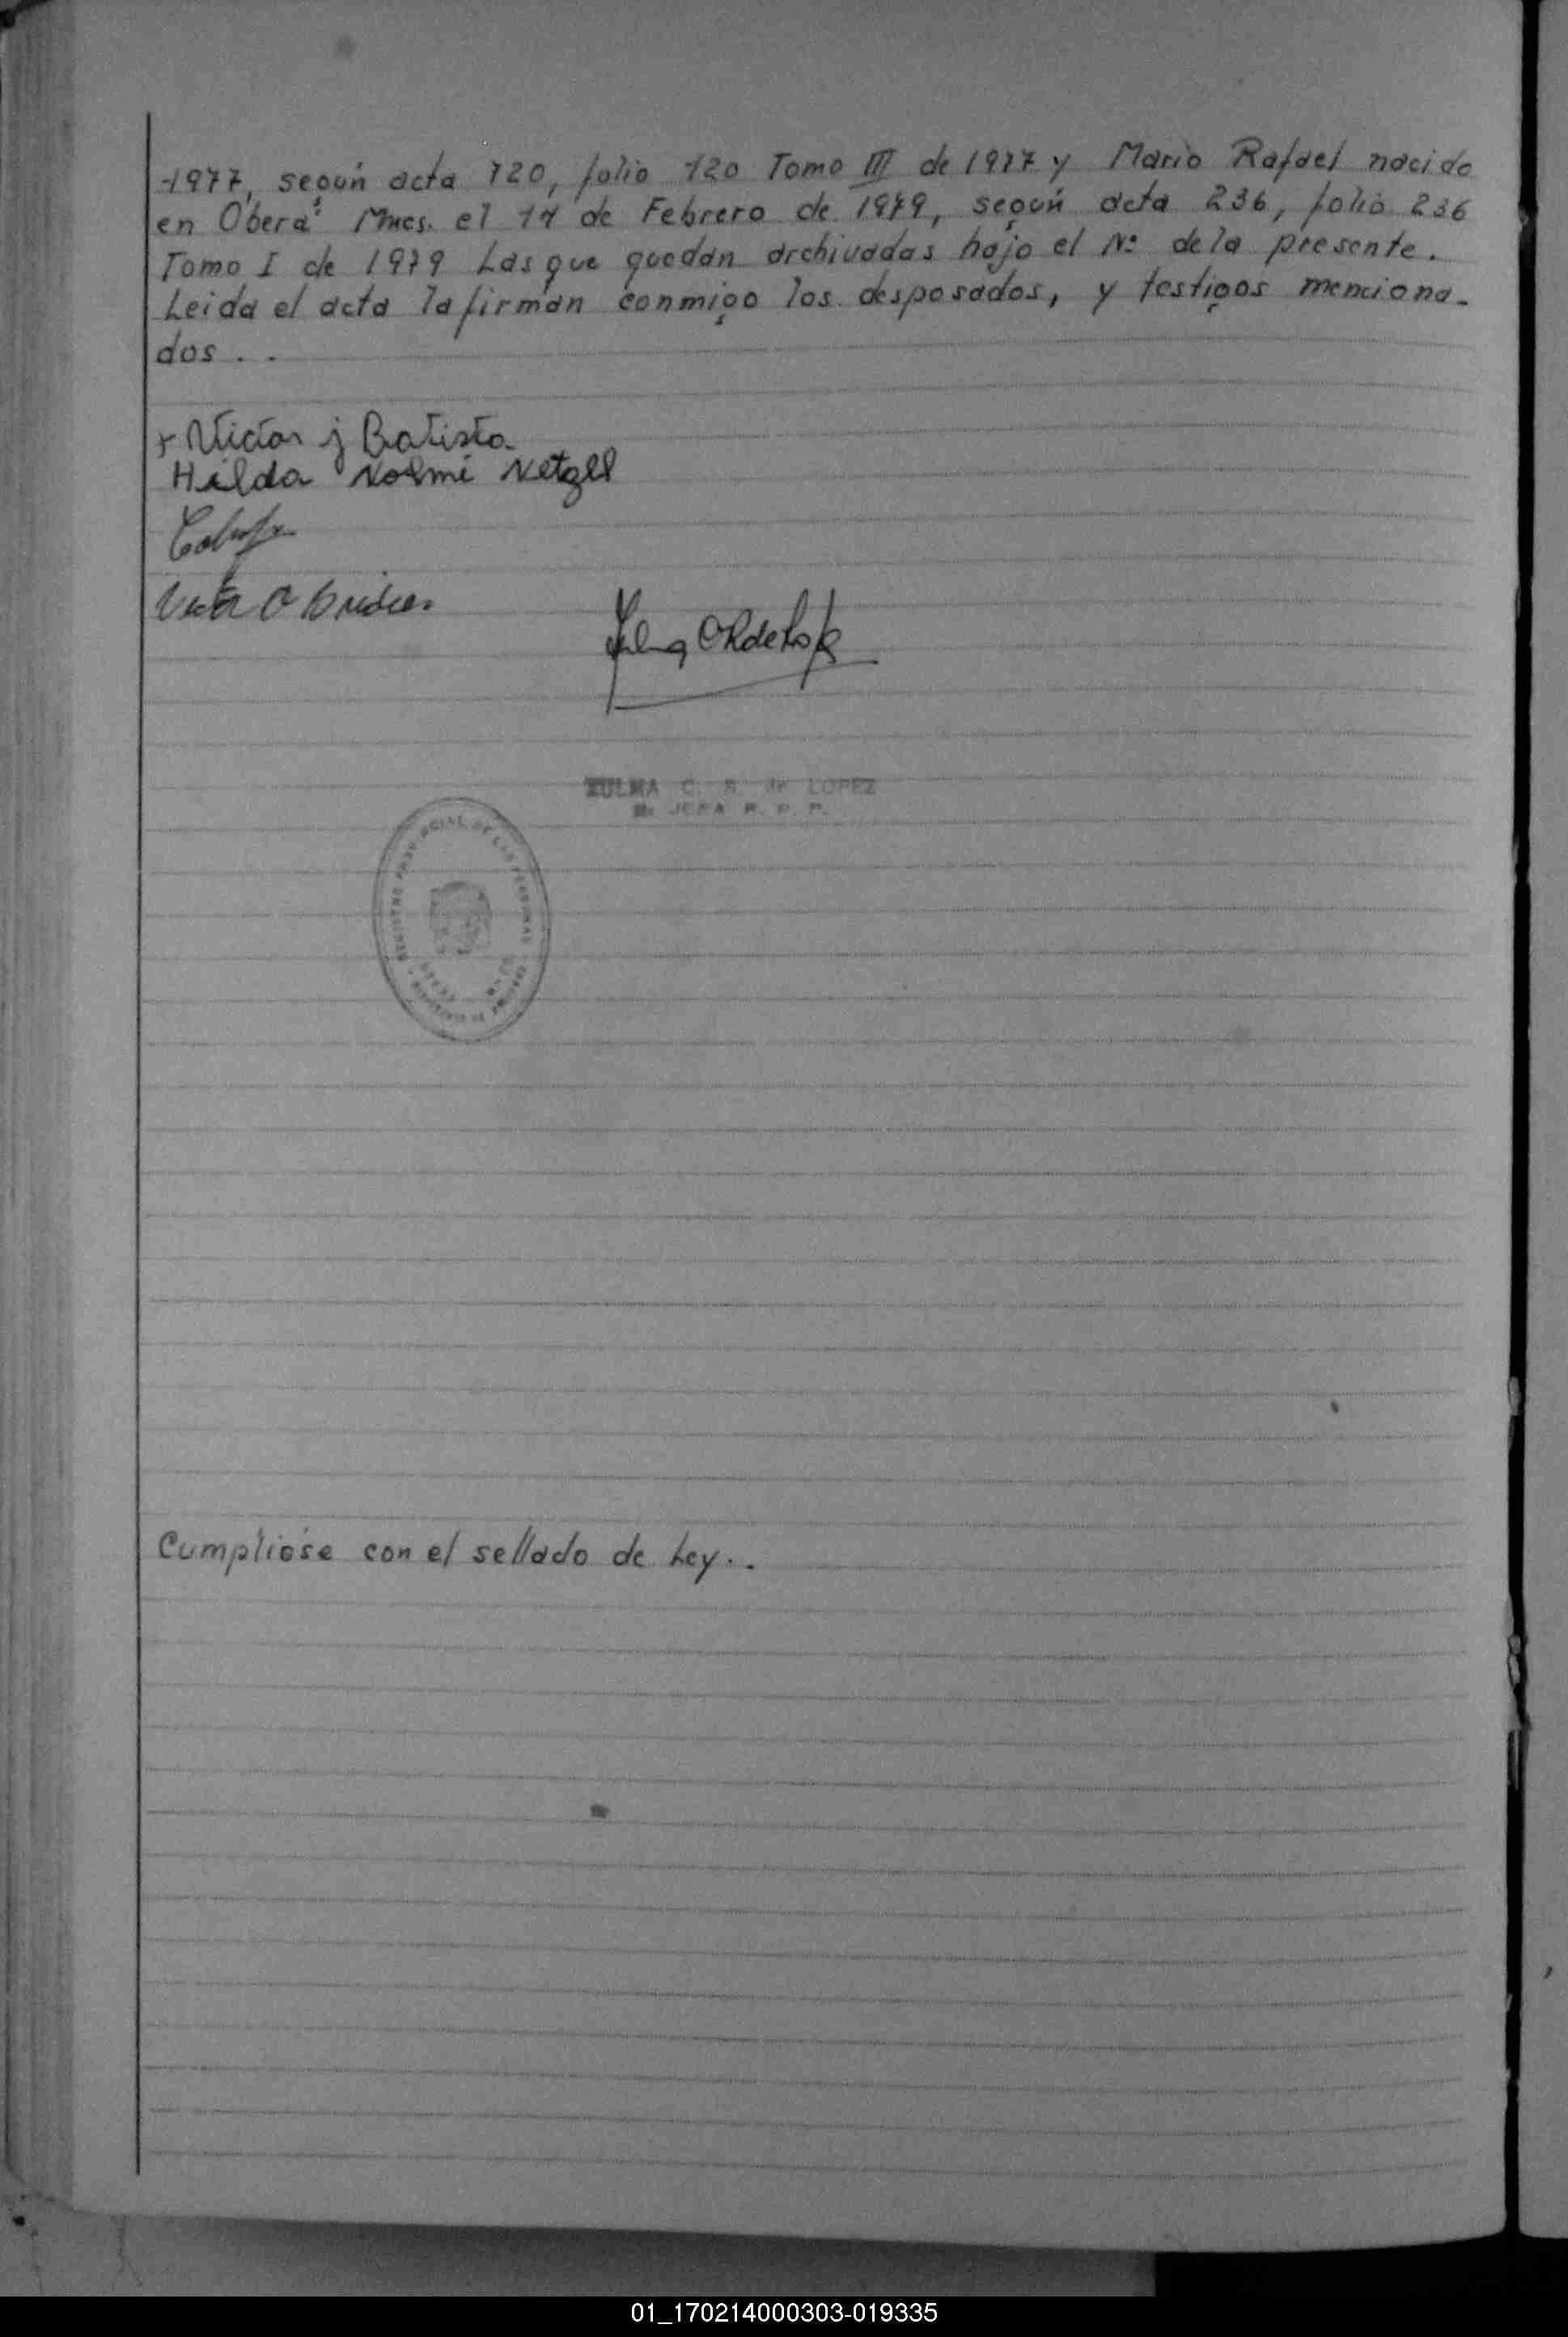 1977, según acta 720, folio 120 Tomo III de 1977 y Mario Rafael nacido
en Oberá Mnes. el 17 de Febrero de 1979, según acta 236, folio 236
Tomo I de 1979 Las que quedan archivadas bajo el Nº de la presente.
Leida el acta la firman conmigo los desposados, y testigos menciona-
dos . .
Victor j Batista
Hilda Noemi Netzel
ZULMA C. R. de LOPEZ
JEFA R. P. P.
REGISTRO PROVINCIAL DE LAS PERSONAS
Cumplióse con el sellado de Ley. .
01_170214000303-019335